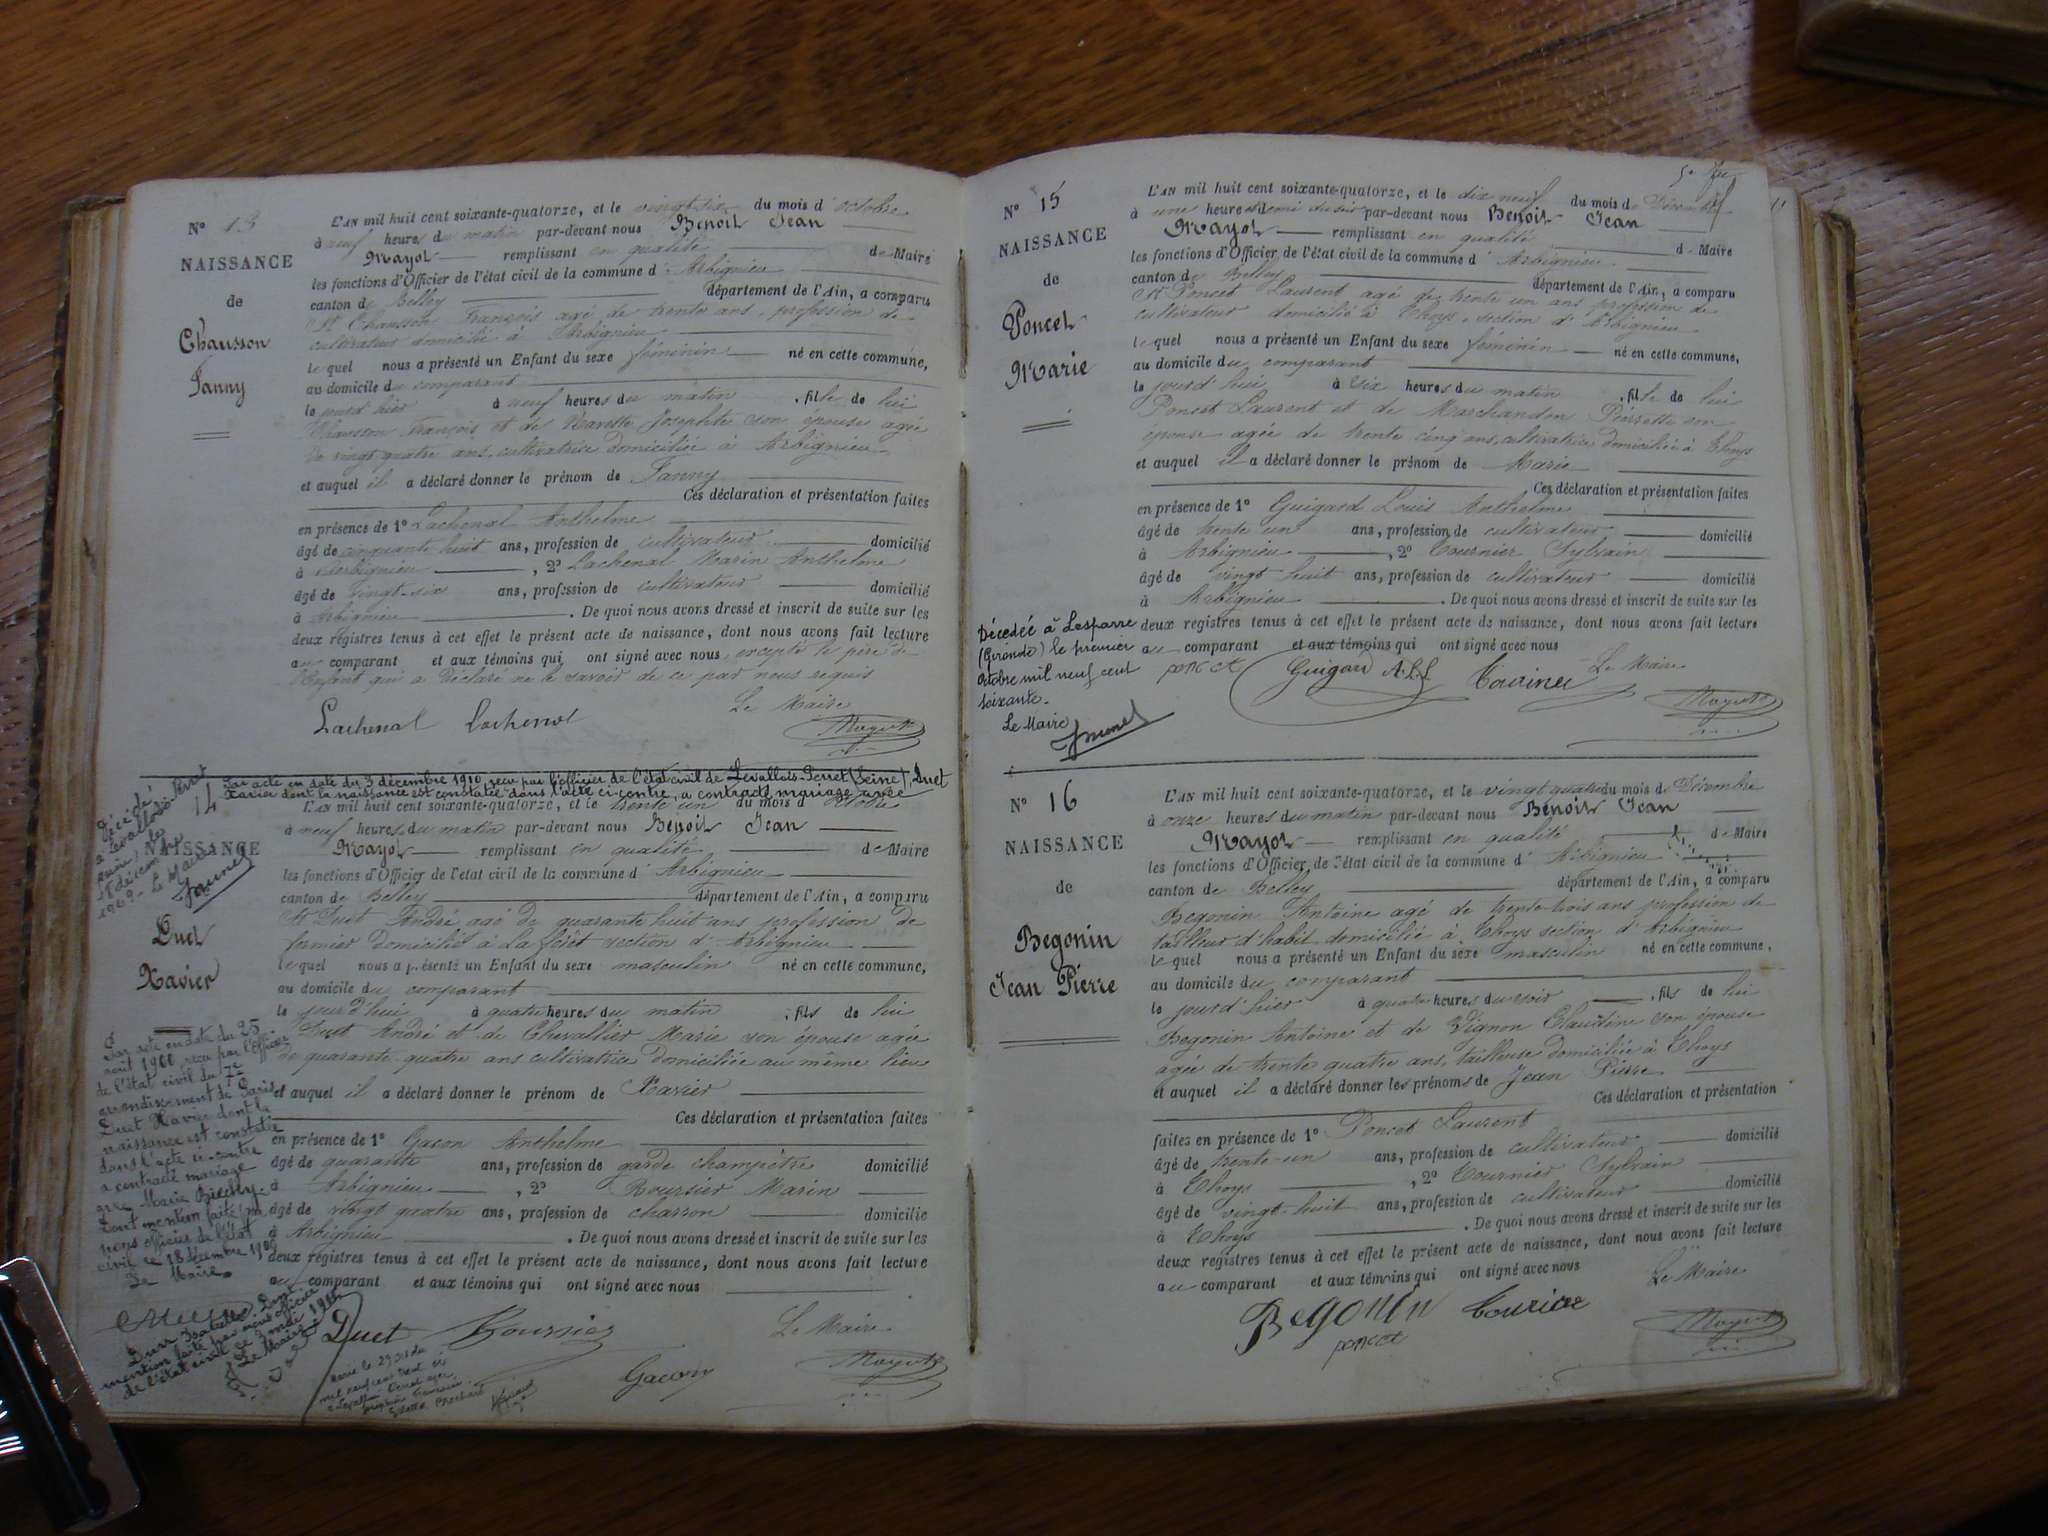 N° 13
NAISSANCE
de
Chausson
Fanny
L'AN mil huit cent soixante-quatorze, et le vingt-six du mois d'octobre
à neuf heures du matin par-devant nous Benoit Jean
Mayot remplissant en qualité de Maire
les fonctions d'Officier de l'état civil de la commune d'Arbignieu
canton de Belley département de l'Ain, a comparu
Chausson François agé de trente ans, profession de
cultivateur domicilié à Arbignieu
lequel nous a présenté un Enfant du sexe féminin né en cette commune,
au domicile du comparant
le jourd'hier à neuf heures du matin, fille de lui
Chausson François et de Ravette Josephte son épouse agée
de vingt quatre ans, cultivatrice domiciliée à Arbignieu
et auquel il a déclaré donner le prénom de Fanny
Ces déclaration et présentation faites
en présence de 1° Lachenal Anthelme
âgé de cinquante huit ans, profession de cultivateur domicilié
à Arbignieu, 2° Lachenal Marin Anthelme
âgé de vingt-six ans, profession de cultivateur domicilié
à Arbignieu. De quoi nous avons dressé et inscrit de suite sur les
deux registres tenus à cet effet le présent acte de naissance, dont nous avons fait lecture
au comparant et aux témoins qui ont signé avec nous, excepté le père de
l'enfant qui a déclaré ne le savoir de ce par nous requis
Le Maire
Lachenal Lachenal Mayot
Décédé
à Levallois-Perret
le
18 décembre
1949. Le Maire
14
Par acte en date du 3 décembre 1910, reçu par l'officier de l'état civil de Levallois-Perret (Seine), Duet
Xavier dont la naissance est constatée dans l'acte ci-contre, a contracté mariage avec
NAISSANCE
Duet
Xavier
L'AN mil huit cent soixante-quatorze, et le trente un du mois d'octobre
à neuf heures du matin par-devant nous Benoit Jean
Mayot remplissant en qualité de Maire
les fonctions d'Officier de l'état civil de la commune d'Arbignieu
canton de Belley département de l'Ain, a comparu
Duet André agé de quarante huit ans profession de
fermier domicilié à La forêt section d'Arbignieu
lequel nous a présenté un Enfant du sexe masculin né en cette commune,
au domicile du comparant
le jourd'hui à quatre heures du matin, fils de lui
Duet André et de Chevallier Marie son épouse agée
de quarante quatre ans cultivatrice domiciliée au même lieu
et auquel il a déclaré donner le prénom de Xavier
Ces déclaration et présentation faites
en présence de 1° Gacon Anthelme
âgé de quarante ans, profession de garde champêtre domicilié
à Arbignieu, 2° Roursier Marin
âgé de vingt quatre ans, profession de charron domicilié
à Arbignieu. De quoi nous avons dressé et inscrit de suite sur les
deux registres tenus à cet effet le présent acte de naissance, dont nous avons fait lecture
au comparant et aux témoins qui ont signé avec nous
Le Maire
Duet Roursier
Gacon Mayot
Par acte en date du 25
août 1900, reçu par l'officier
de l'état civil du 7e
arrondissement de Paris
Duet Xavier dont la
naissance est constatée
dans l'acte ci-contre
a contracté mariage
avec Marie
Dont mention faite par
nous officier de l'état
civil ce 18 décembre 1900
Le Maire.
Isabelle. Dont
mention faite par nous officier
de l'état civil ce 3 mai
Le Maire
N° 15
NAISSANCE
de
Poncet
Marie
L'AN mil huit cent soixante-quatorze, et le dix neuf du mois de Décembre
à une heure et demi du soir par-devant nous Benoit Jean
Mayot remplissant en qualité de Maire
les fonctions d'Officier de l'état civil de la commune d'Arbignieu
canton de Belley département de l'Ain, a comparu
Poncet Laurent agé de trente un ans profession de
cultivateur domicilié à Thoys, section d'Arbignieu
lequel nous a présenté un Enfant du sexe féminin né en cette commune,
au domicile du comparant
le jourd'hui à six heures du matin, fille de lui
Poncet Laurent et de Marchandon Pierrette son
épouse agée de trente cinq ans, cultivatrice domiciliée à Thoys
et auquel il a déclaré donner le prénom de Marie
Ces déclaration et présentation faites
en présence de 1° Guigard Louis Anthelme
âgé de trente un ans, profession de cultivateur domicilié
à Arbignieu, 2° Tournier Sylvain
âgé de vingt huit ans, profession de cultivateur domicilié
à Arbignieu. De quoi nous avons dressé et inscrit de suite sur les
deux registres tenus à cet effet le présent acte de naissance, dont nous avons fait lecture
au comparant et aux témoins qui ont signé avec nous
poncet Guigard A.L. Tournier Le Maire
Mayot
Décédée à Lesparre
(Gironde) le premier
octobre mil neuf cent
soixante.
Le Maire
N° 16
NAISSANCE
de
Begonin
Jean Pierre
L'AN mil huit cent soixante-quatorze, et le vingt quatre du mois de Décembre
à onze heures du matin par-devant nous Benoit Jean
Mayot remplissant en qualité de Maire
les fonctions d'Officier de l'état civil de la commune d'Arbignieu
canton de Belley département de l'Ain, a comparu
Begonin Antoine agé de trente-trois ans profession de
tailleur d'habit domicilié à Thoys section d'Arbignieu
lequel nous a présenté un Enfant du sexe masculin né en cette commune,
au domicile du comparant
le jourd'hier à quatre heures du soir, fils de lui
Begonin Antoine et de Vignon Claudine son épouse
agée de trente quatre ans, tailleuse domiciliée à Thoys
et auquel il a déclaré donner les prénoms de Jean Pierre
Ces déclaration et présentation
faites en présence de 1° Poncet Laurent
âgé de trente-un ans, profession de cultivateur domicilié
à Thoys, 2° Tournier Sylvain
âgé de vingt-huit ans, profession de cultivateur domicilié
à Thoys. De quoi nous avons dressé et inscrit de suite sur les
deux registres tenus à cet effet le présent acte de naissance, dont nous avons fait lecture
au comparant et aux témoins qui ont signé avec nous
Le Maire
Begonin Tournier
poncet Mayot